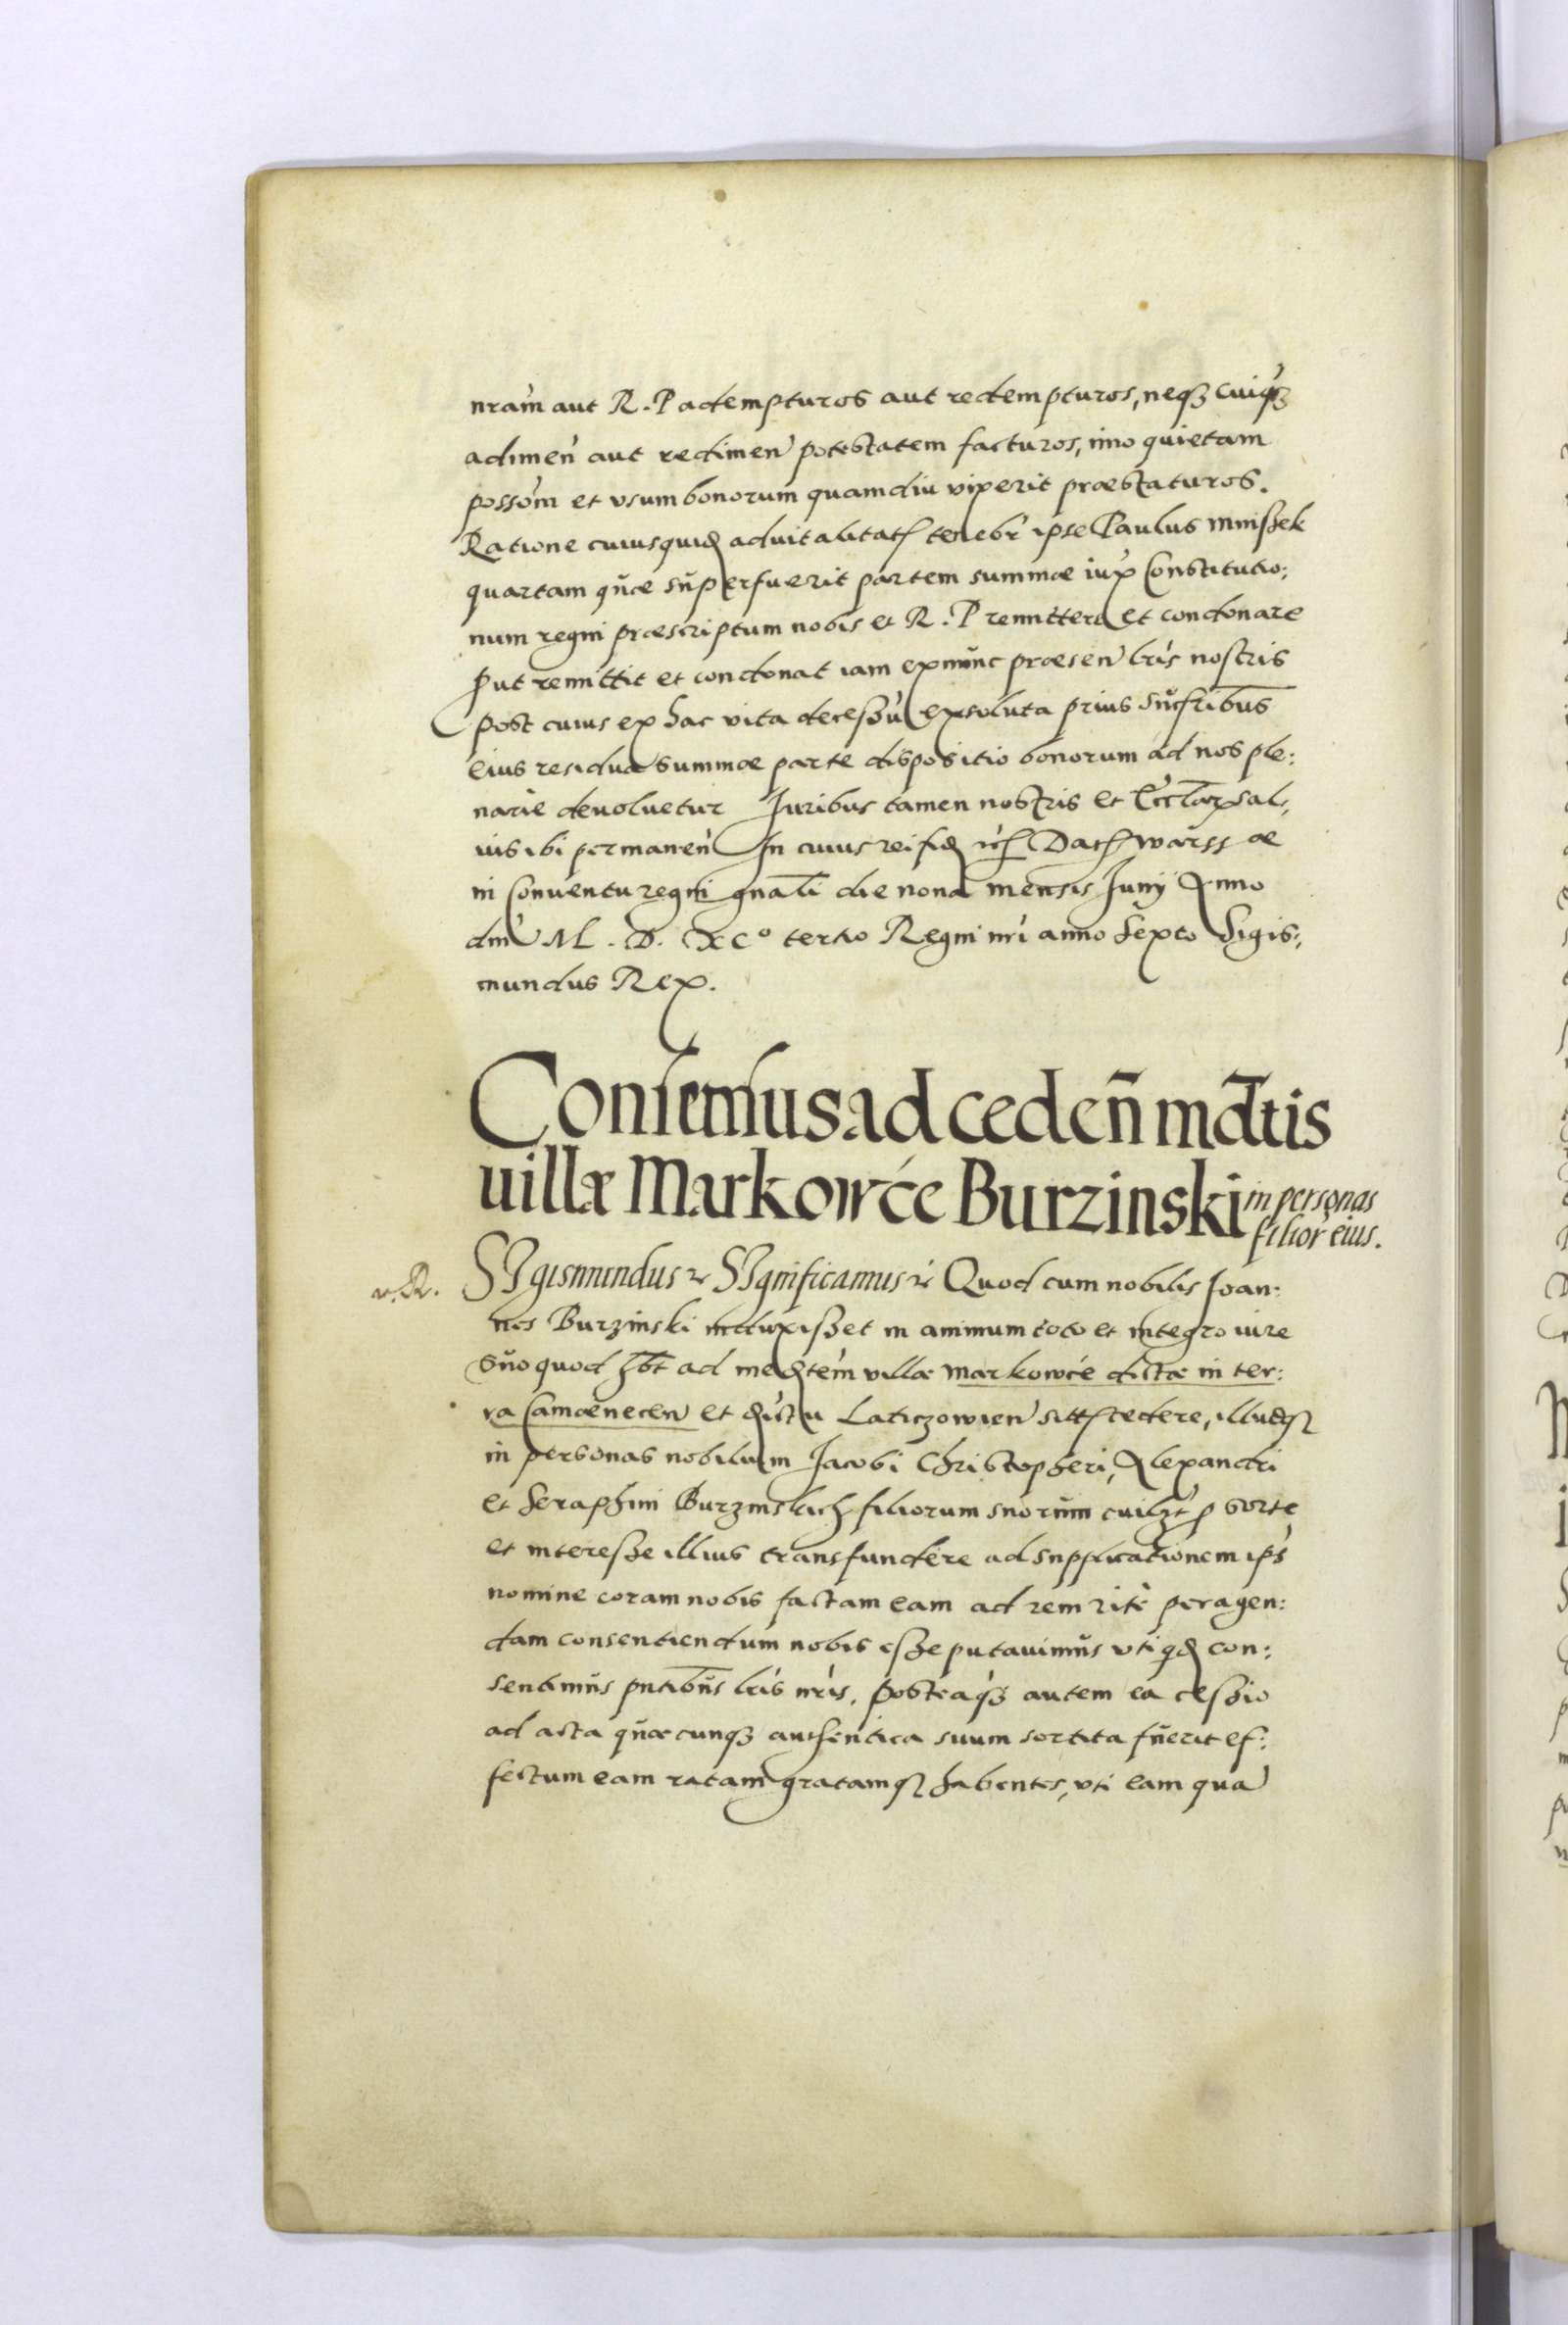 nram aut R. P adempturos aut redempturos, neqꝫ cuiqꝫ
adimen aut redimen potestatem facturos, imo quietam
possom et vsum bonorum quamdiu vixerit præstaturos.
Ratione cuiusquid aduitalitatꝭ tenebr ipse Paulus Mniszek
quartam quæ superfuerit partem summæ iux Constitutio:
num regni præscriptum nobis et R. P remittere et condonare
Put remittit et condonat iam ex nunc præsen lris nostris
Post cuius ex hac vita decessu exsoluta prius sucſribus
eius residua summæ parte dispositio bonorum ad nos ple:
narie devoluetur Juribus tamen nostris et Eccl͞ar sal,
uis ibi permanen In cuius rei fid etc Datꝭ Warss æ
in Conventu regni gnali die nona mensis Juny Anno
dni M. D. XCo tertio Regni nri anno sexto Sigis:,
mundus Rex.
Consensus ad ceden̄ md̄tis
uillæ Markowće Burzinski in personas
filior eius.
v. R. SIgismundus etc SIgnificamus etc Quod cum nobilis Joan:
nes Burzinski induxiszet in animum toto et integro iure
suo quod hꝫt ad medtem villæ Markowće dictæ in ter:
ra Camænecen et distu Laticzowien sittꝭ cedere, illudqꝫ
in personas nobilium Jacobi Christopheri, Alexandri
et Seraphini Burzinskich filiorum suorum cuilꝫt ꝓ sorte
et interesze illius transfundere ad supplicationem ips
nomine coram nobis factam eam ad rem rite peragen:
dam consentiendum nobis esze putauimus vti qd con:
sentimus pntibus lris nris. Posteaqꝫ autem ea cessio
ad acta quæcunqꝫ authentica suum sortita fuerit ef:
fectum eam ratam gratamqꝫ habentes, vti eam qua